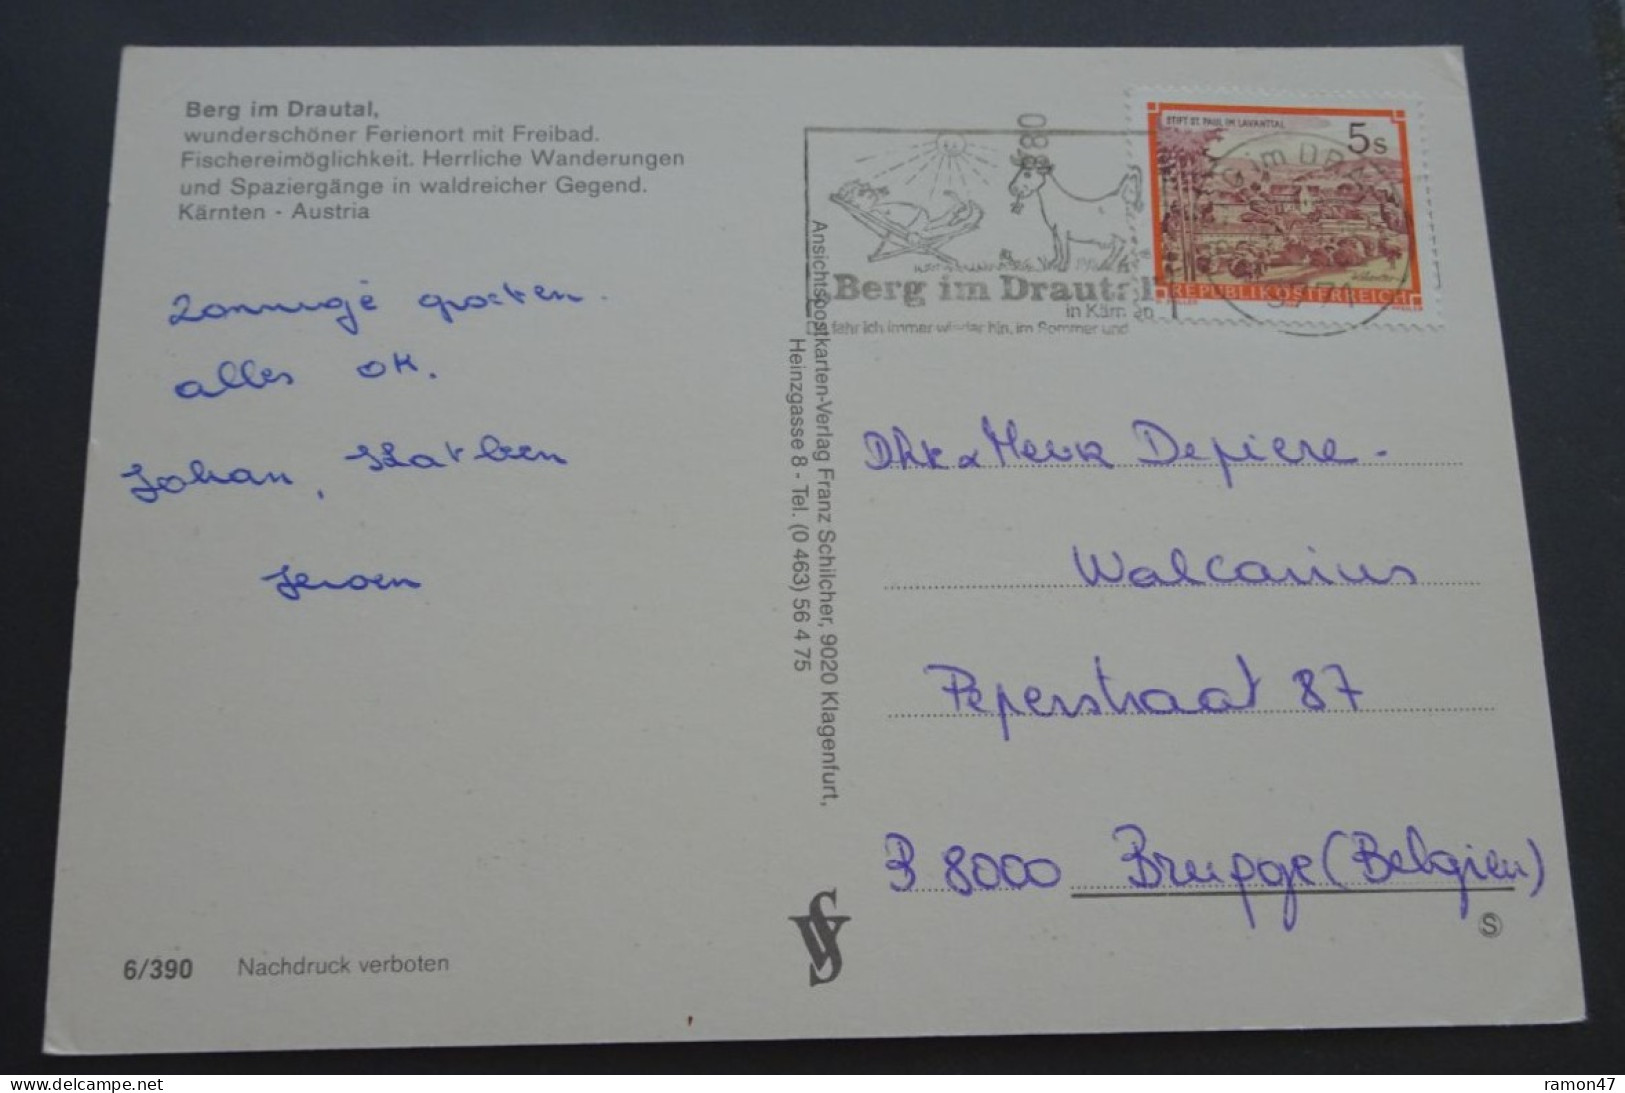 Berg im Drautal,
wunderschöner Ferienort mit Freibad.
Fischereimöglichkeit. Herrliche Wanderungen
und Spaziergänge in waldreicher Gegend.
Kärnten - Austria
Zonnige groeten.
alles OK.
Johan,
Jeroen
6/390 Nachdruck verboten
Ansichtspostkarten-Verlag Franz Schilcher, 9020 Klagenfurt,
Heinzgasse 8 - Tel. (0 463) 56 4 75
Berg im Drautal
in Kärnten
fahr ich immer wieder hin, im Sommer und
STIFT ST. PAUL IM LAVANTTAL
5s
REPUBLIK ÖSTERREICH
Mevr Depiere -
Walcarius
Peperstraat 87
B 8000 Brugge (Belgien)
S
delcampe.net
ramon47